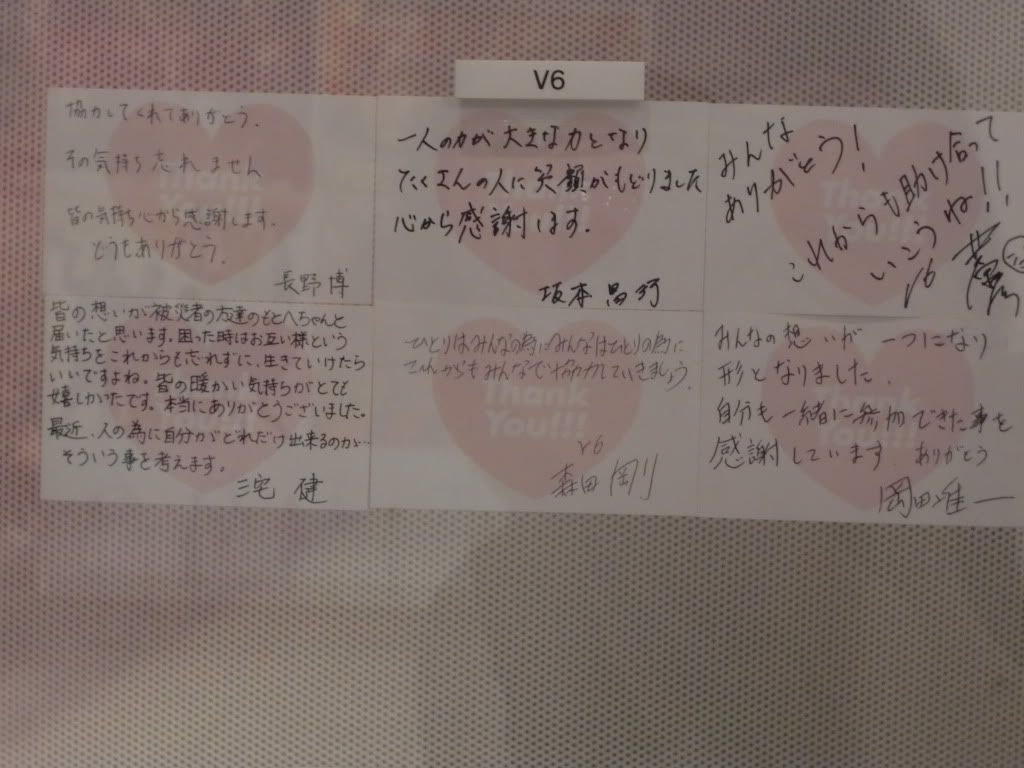 V6
協力してくれてありがとう.
その気持ち忘れません
皆の気持ち心から感謝します.
どうもありがとう.
長野 博
一人の力が大きな力となり
たくさんの人に笑顔がもどりました
心から感謝します.
坂本 昌行
みんな
ありがとう!
これからも助け合って
いこうね!!
V6
皆の想いが被災者の友達のもとへちゃんと
届いたと思います。困った時はお互い様という
気持ちをこれからも忘れずに、生きていけたら
いいですよね。皆の暖かい気持ちがとても
嬉しかたです。本当にありがとうございました。
最近、人の為に自分がどれだけ出来るのか…
そういう事を考えます。
三宅 健
ひとりはみんなの為にみんなはひとりの為に
これからもみんなで協力していきましょう.
V6
森田 剛
みんなの想いが 一つになり
形となりました.
自分も一緒に参加できた事を
感謝しています ありがとう
岡田准一
Thank
You!!!
Thank
You!!!
Thank
You!!!
Thank
You!!!